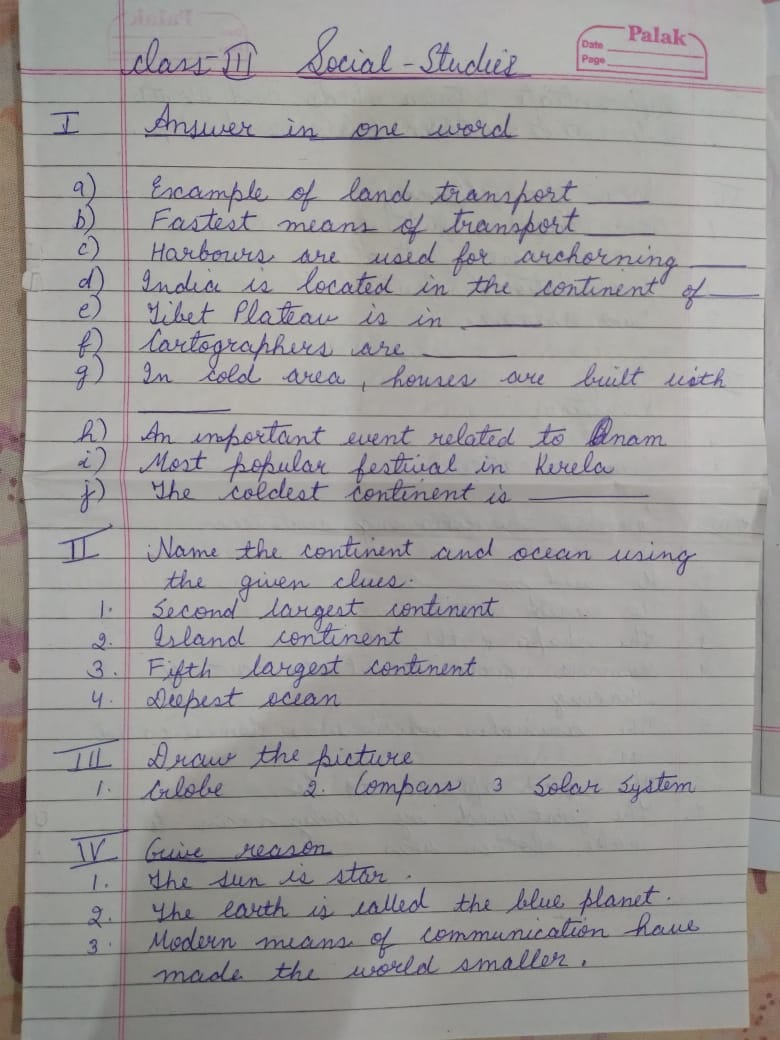 Palak
Date
Page
Class-III Social-Studies
I Answer in one word
a) Example of land transport ____
b) Fastest means of transport ____
c) Harbours are used for archorning ____
d) India is located in the continent of ____
e) Tibet Plateau is in ____
f) Cartographers are ____
g) In cold area, houses are built with
____
h) An important event related to Onam
i) Most popular festival in Kerela
j) The coldest continent is ____
II Name the continent and ocean using
the given clues.
1. Second largest continent
2. Island continent
3. Fifth largest continent
4. Deepest ocean
III Draw the picture
1. Globe 2. Compass 3 Solar System
IV Give reason
1. The sun is star.
2. The earth is called the blue planet.
3. Modern means of communication have
made the world smaller.